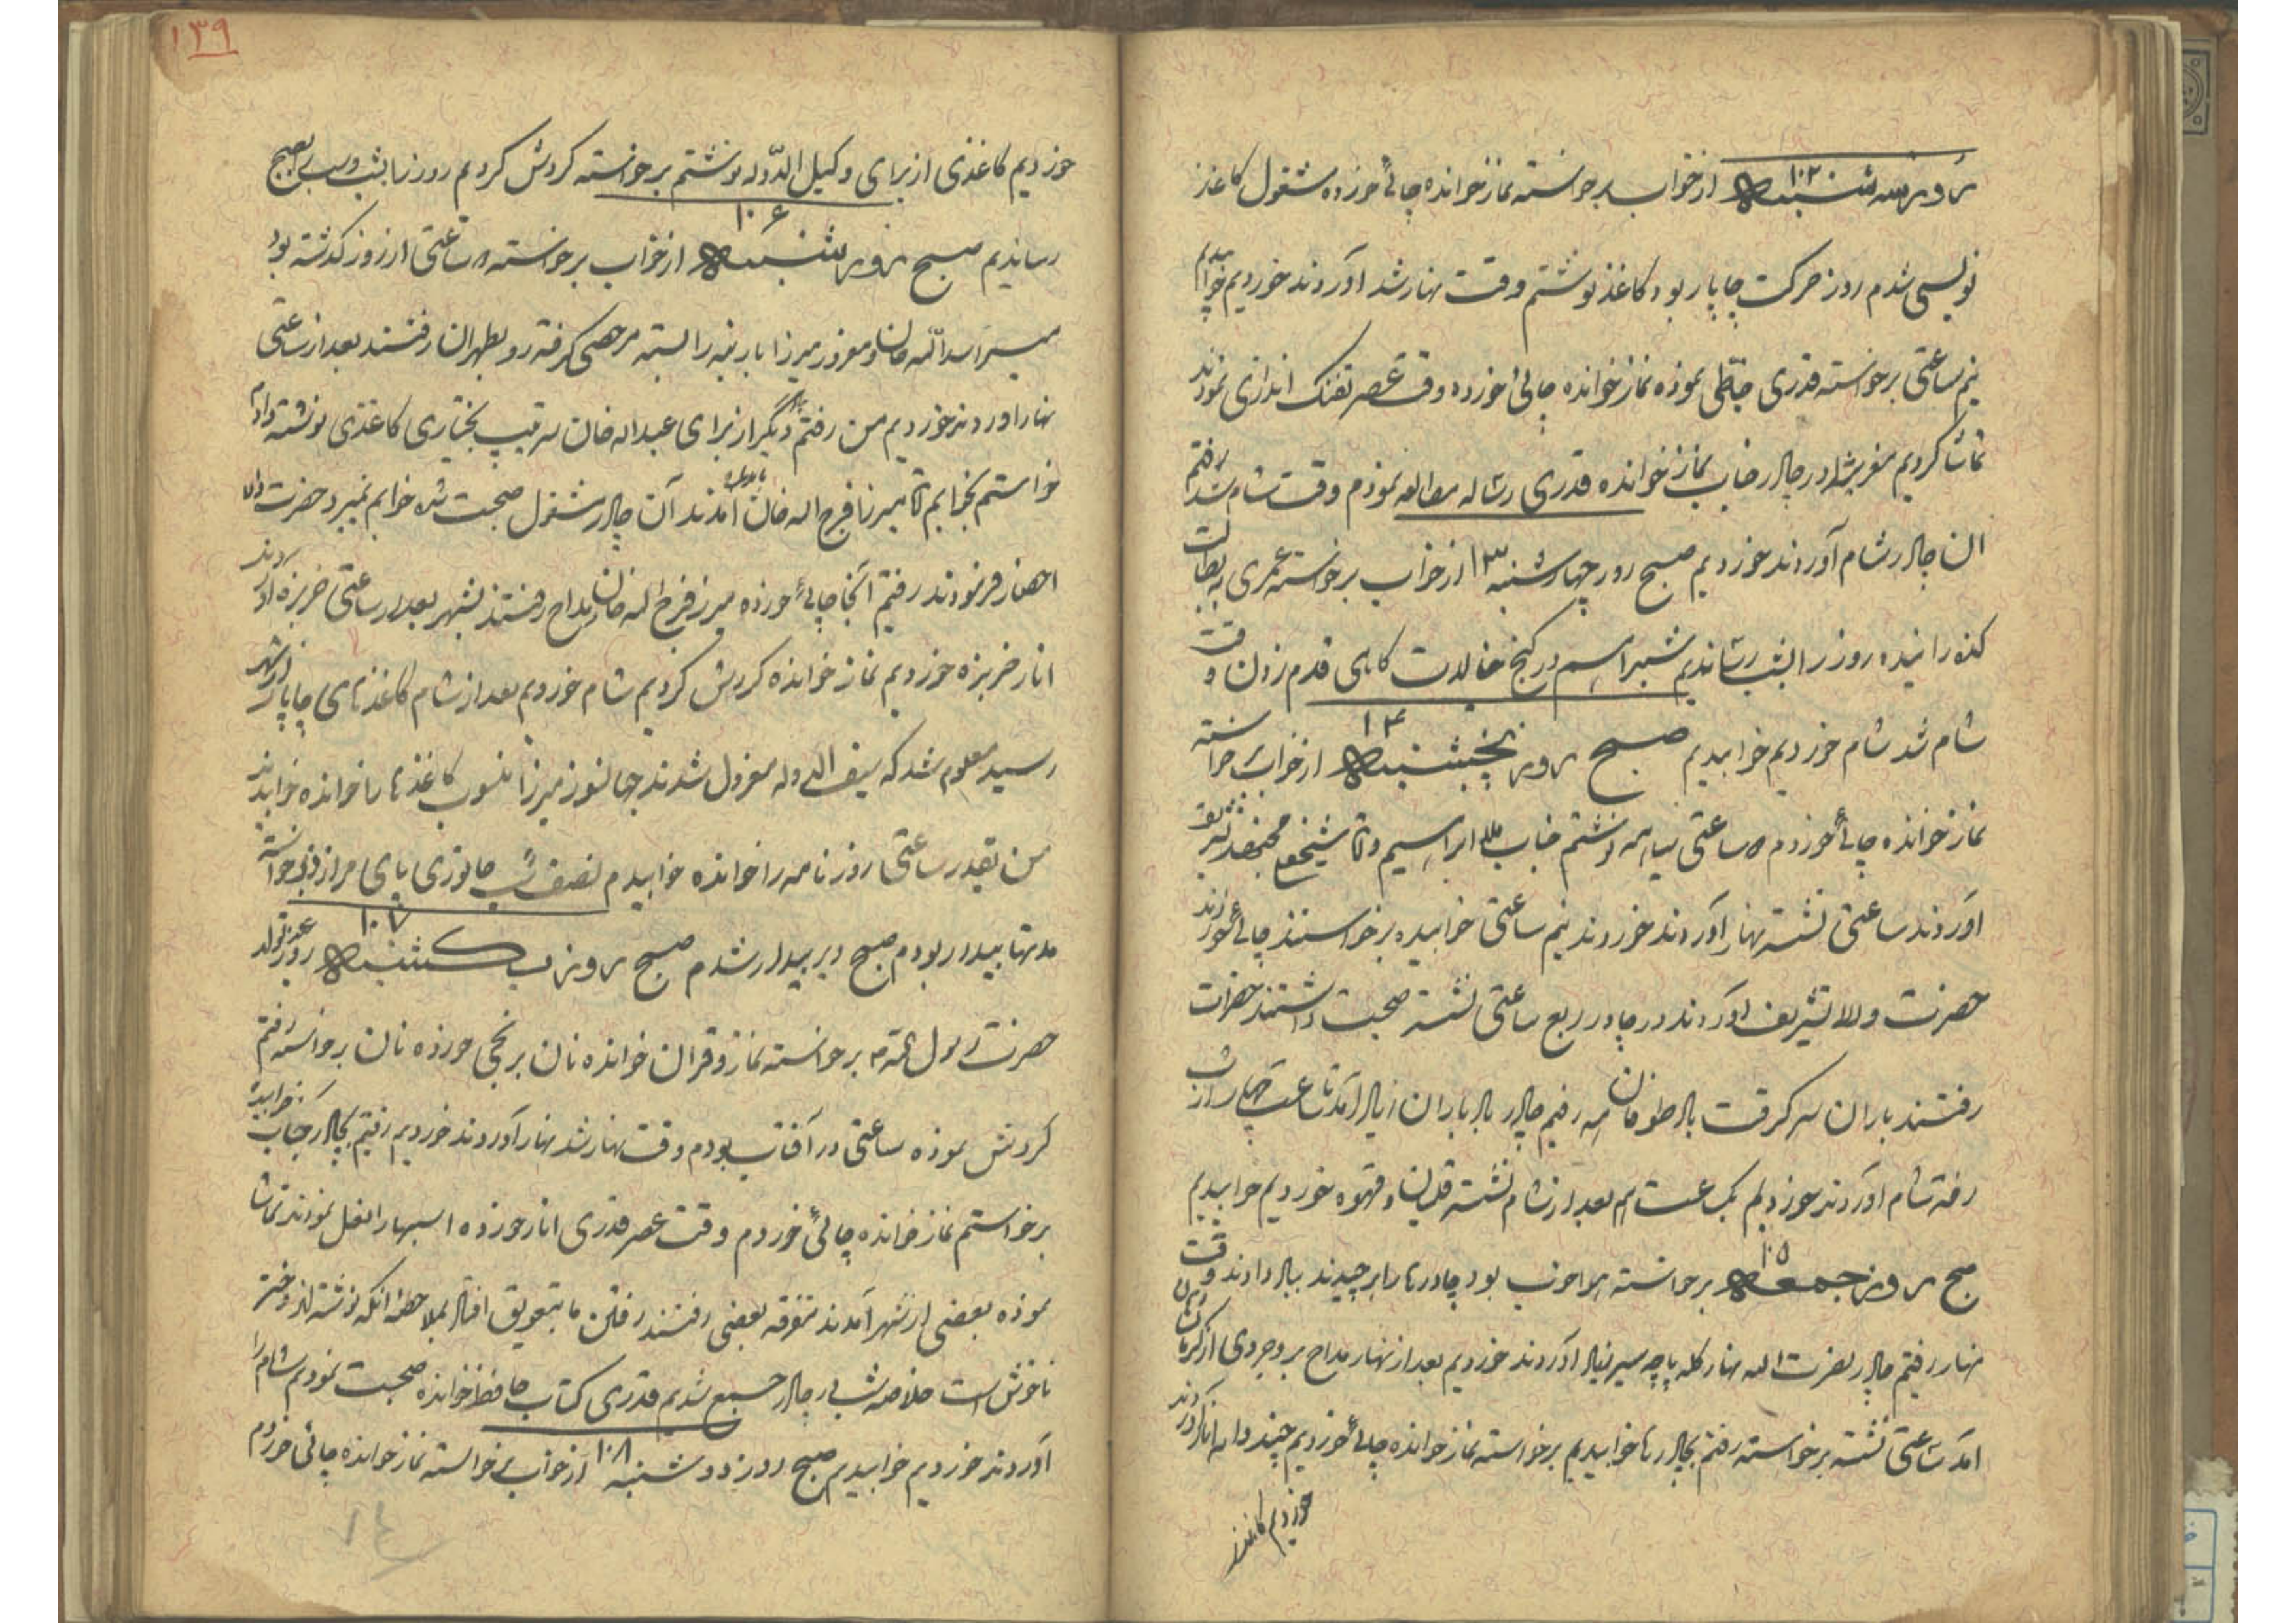 روز سه شنبه ۱۰۲ از خواب برخواسته نماز خوانده چائی خورده مشغول کاغذ
نویسی شدم روز حرکت چاپار بود کاغذ نوشتم وقت نهار شد آوردند خوردیم خوابیدیم
نیم ساعتی برخواسته قدری خطی نموده نماز خوانده چائی خورده وقت عصر تفنک اندازی نمودند
تماشا کردیم مغرب شد در چادر جناب نماز خوانده قدری رساله مطالعه نمودم وقت شام شد رفتم
آن چادر شام آوردند خوردیم صبح روز چهارشنبه ۱۳ از خواب برخواسته عمری به بطالت
گذرانیده روز را بشب رساندیم شب را هم در کنج خیالات کاهی قدم زدن وقت
شام شد شام خوردیم خوابیدیم صبح روز پنجشنبه ۱۴ از خواب برخواسته
نماز خوانده چائی خوردم ۵ ساعتی سیاهه نوشتم جناب ملا ابراهیم و آقا شیخ محمد تشریف
آوردند ساعتی نشسته نهار آوردند خوردند نیم ساعتی خوابیده برخواستند چائی خوردند
حضرت والا تشریف آوردند در چادر ربع ساعتی نشسته صحبت داشتند حضرات
رفتند باران سر گرفت باد طوفان رفتیم چادر باد باران زیاد آمد تا ساعت چهار از شب
رفته شام آوردند خوردیم یک ساعت هم بعد از شام نشسته قلیان و قهوه خوردیم خوابیدیم
صبح روز جمعه ۱۰۵ برخواسته هوا خوب بود چادرها را برچیدند بباد دادند وقت
نهار رفتیم چادر نصرت اله نهار کله پاچه سیر زیاد آوردند خوردیم بعد از نهار مداح بروجردی از کرمانشاهان
آمد ساعتی نشسته برخواسته رفتم بچادر تا خوابیدیم برخواسته نماز خوانده چائی خوردیم چند دانه انار آوردند
خوردیم کاغذ
۱۳۹
خوردیم کاغذی از برای وکیل الدوله نوشتم برخواسته کردش کردیم روز را بشب و شب را بصبح
رساندیم صبح روز شنبه ۱۰۶ از خواب برخواسته ۵ ساعتی از روز گذشته بود
میر اسدالله خان و معزور میرزا بار بنه را بسته مرخصی گرفته رو بطهران رفتند بعد از ساعتی
نهار آوردند خوردیم من رفتم چادر دیگر از برای عبداله خان سرتیپ بختیاری کاغذی نوشته دادم
خواستم بخوابم آقا میرزا فرج اله خان آمدند آن چادر مشغول صحبت شده خوابم نمیبرد حضرت والا
احضار فرمودند رفتم آنجا چائی خورده میرزا فرج اله خان و مداح رفتند بشهر بعد از ساعتی خربزه آوردند
انار خربزه خوردیم نماز خوانده کردش کردیم شام خوردیم بعد از شام کاغذهای چاپار از شهر
رسید معلوم شد که سیف الدوله معزول شدند جهانسوز میرزا منسوب کاغذها را خوانده خوابیدند
من بقدر ساعتی روزنامه را خوانده خوابیدم نصف شب جانوری پای مرا از خواب برخواسته
مدتها بیدار بودم صبح دیر بیدار شدم صبح روز یکشنبه ۱۰۷ روز عید تولد
حضرت رسول الله ۴ برخواسته نماز و قران خوانده نان برنجی خورده نان برخواسته رفتم
کردش نموده ساعتی در آفتاب بودم وقت نهار شد نهار آوردند خوردیم رفتیم بچادر جناب خوابیده
برخواستم نماز خوانده چائی خوردم وقت عصر قدری انار خورده اسبها را نعل نمودند تماشا
نموده بعضی از شهر آمدند متفرقه بعضی رفتند رفتن ما بتعویق افتاد بملاحظه آنکه نوشته اند دختر
ناخوش است خلاصه شب در چادر جمع شدیم قدری کتاب حافظ خوانده صحبت نمودیم شام را
آوردند خوردیم خوابیدیم صبح روز دوشنبه ۱۰۸ از خواب برخواسته نماز خوانده چائی خوردم